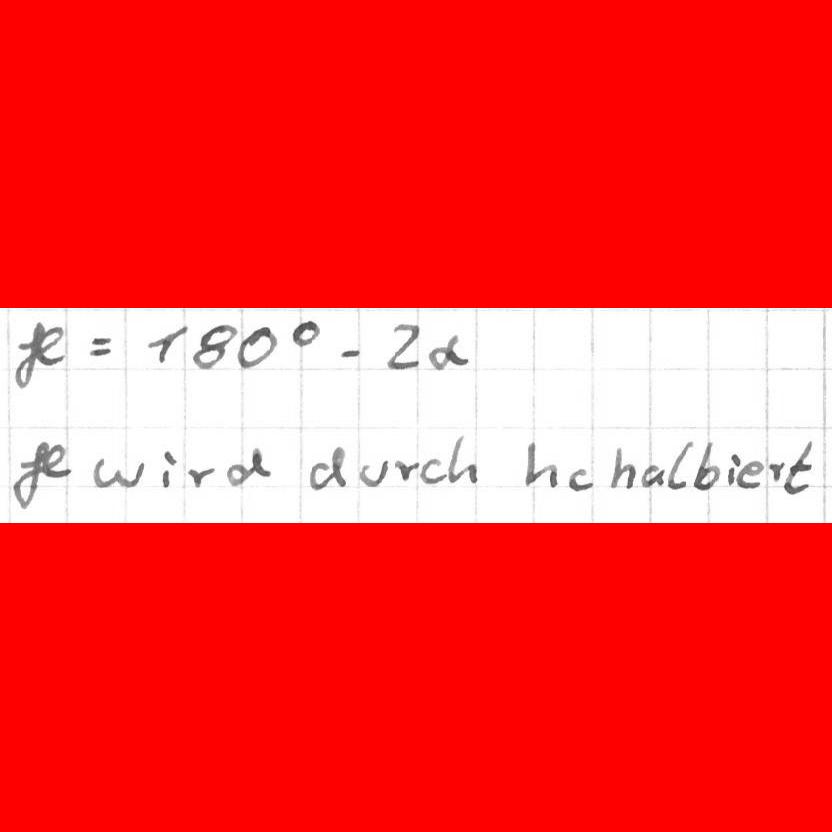 γ = 180° - 2α
γ wird durch hc halbiert